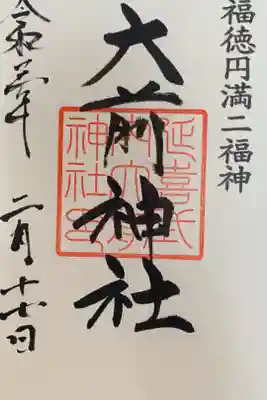 福徳円満二福神
大前神社
延喜式
神社印
令和 年 二月十七日